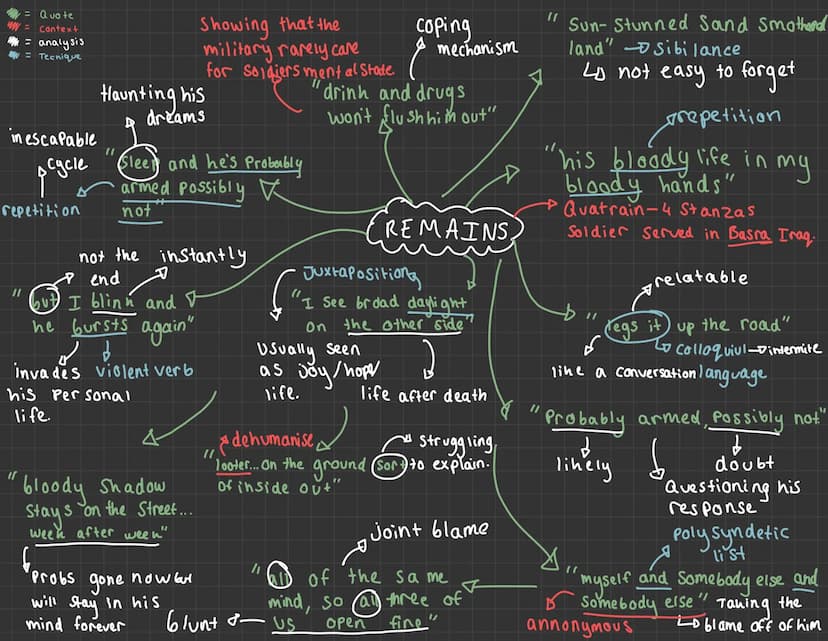 = Quote
= Context
= analysis
= Tecnique
Showing that the
military rarely care
for soldiers mental state.
coping
mechanism
"drink and drugs
won't flush him out"
"Sun-Stunned Sand Smothered
land" → Sibilance
↳ not easy to forget
Haunting his
dreams
inescapable
cycle
"Sleep and he's Probably
armed possibly
not"
repetition
repetition
"his bloody life in my
bloody hands"
REMAINS
Quatrain - 4 Stanzas
Soldier served in Basra Iraq.
not the
end
instantly
"but I blink and
he bursts again"
invades
his personal
life.
violent verb
Juxtaposition
"I see broad daylight
on the other side"
Usually seen
as joy/hope/
life.
life after death
relatable
"legs it up the road"
colloquiul → intermite
language
like a conversation
"Probably armed, Possibly not"
likely
doubt
Questioning his
response
dehumanise
"looter... on the ground
sort of inside out"
Struggling
to explain.
"bloody Shadow
Stays on the Street...
week after week"
Probs gone now but
will stay in his
mind forever
joint blame
"all of the same
mind, so all three of
us open fire"
blunt
polysyndetic
list
"myself and Somebody else and
Somebody else"
annonymous
Taking the
↳ blame off of him